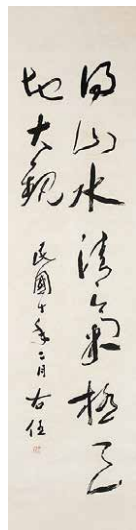 得山水清氣極天
地大觀
民國十年二月右任